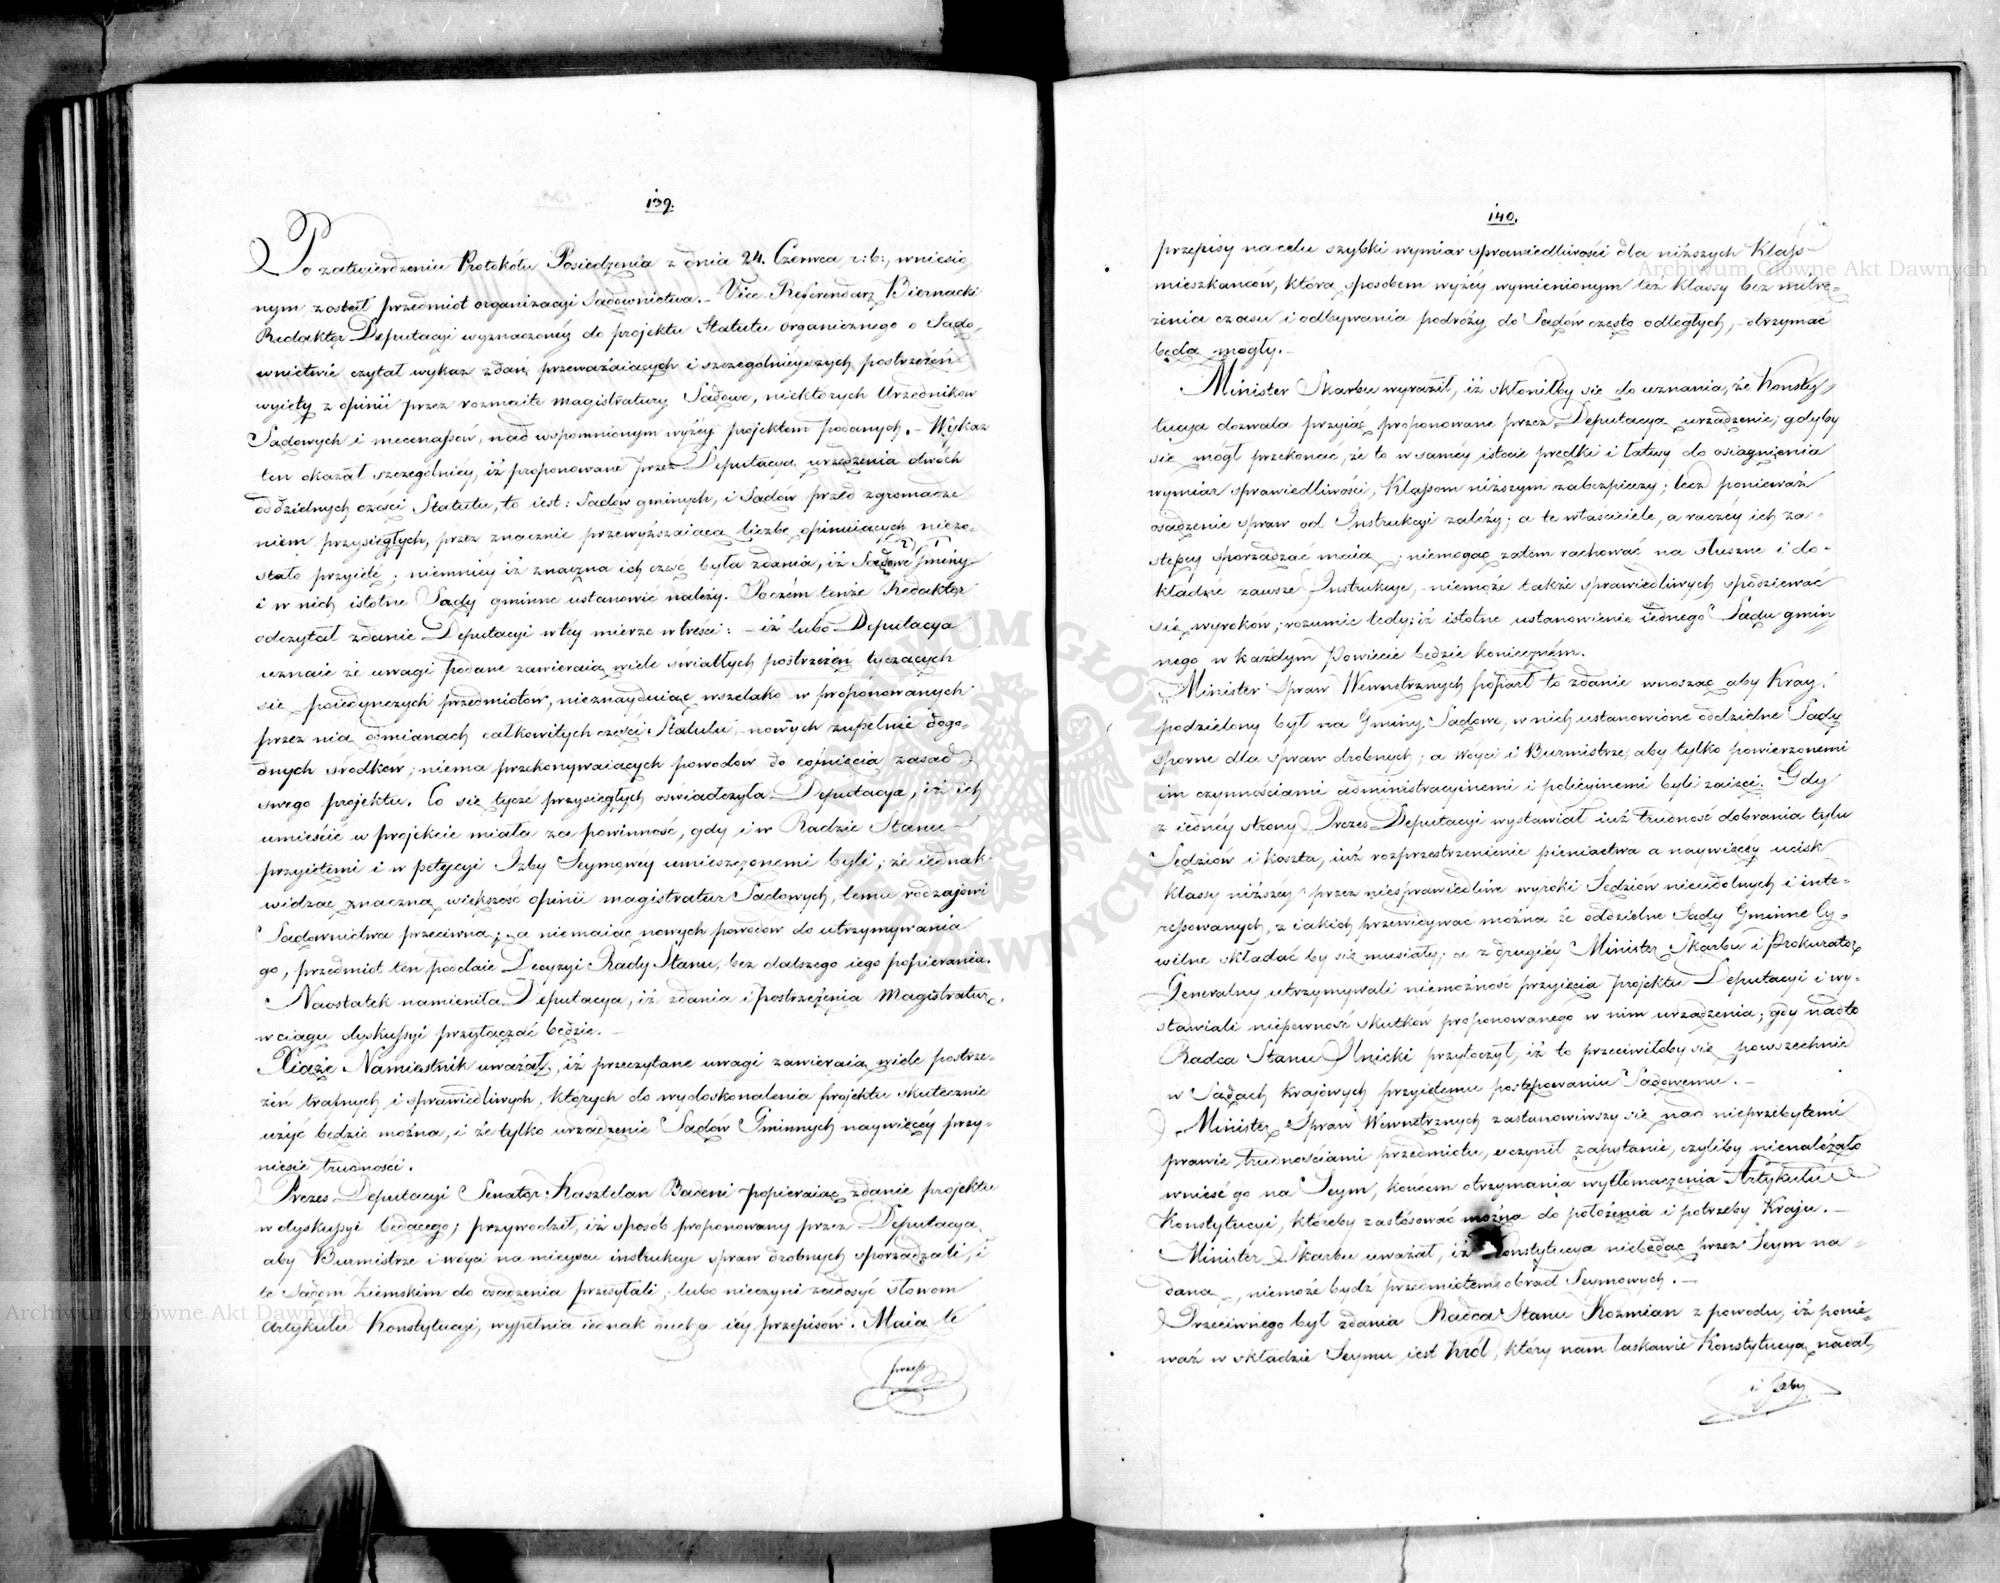 139.
Po zatwierdzeniu Protokółu Posiedzenia z dnia 24. Czerwca r: b:, wniesio
nym został przedmiot organizacyi Sądownictwa. – Vice-Referendarz Biernacki
Redaktor Deputacyi wyznaczonéy do projektu Statutu organicznego o Sądo-
wnictwie czytał wykaz zdań przeważaiących i szczególnieyszych postrzeżeń
wyięty z opinii przez rozmaite magistratury Sądowe, niektórych Urzędników
Sądowych i mecenassów, nad wspomnionym wyżéy projektem podanych. – Wykaz
ten okazał szczególniéy, iż proponowane przez Deputacyą urządzenia dwóch
oddzielnych części Statutu, to iest: Sądów gminnych, i Sądów przed zgromadze
niem przysięgłych, przez znacznie przewyższaiącą liczbę opiniuiących niezo-
stało przyięte; niemniéy iż znaczna ich część była zdania, iż Sądowe Gminy
i w nich istotne Sądy gminne ustanowić należy. Poczém tenże Redaktor
odczytał zdanie Deputacyi w téy mierze w treści: – iż lubo Deputacya
uznaie że uwagi podane zawieraią wiele światłych postrzeżeń tyczących
się poiedynczych przedmiotów, nieznayduiąc wszelako w proponowanych
przez nią odmianach całkowitych części Statutu nowych zupełnie dogo-
dnych srodków, niema przekonywaiących powodów do cofnięcia zasad
swego projektu. Co się tycze przysięgłych oswiadczyła Deputacya, iż ich
umieścić w projekcie miała za powinność, gdy i w Radzie Stanu
przyiętemi i w petycyi Izby Seymowéy umieszczonemi byli; że iednak
widząc znaczną większość opinii magistratur Sądowych, temu rodzajowi
Sądownictwa przeciwną; a niemaiąc nowych powodów do utrzymywania
go, przedmiot ten poddaie Decyzyi Rady Stanu, bez dalszego iego popierania.
Naostatek namieniła Deputacya, iż zdania i postrzeżenia Magistratur,
w ciągu dyskussyi przytaczać będzie. –
Xiąże Namiestnik uważał, iż przeczytane uwagi zawieraią wiele postrze-
żeń trafnych i sprawiedliwych, których do wydoskonalenia projektu skutecznie
użyć będzie można, i że tylko urządzenie Sądów Gminnych naywięcéy przy-
niesie trudności.
Prezes Deputacyi Senator Kasztelan Badeni popieraiąc zdanie projektu
w dyskussyi będącego; przywodził, iż sposób proponowany przez Deputacyą
aby Burmistrze i wóyci na mieyscu instrukcye spraw drobnych sporządzali, i
te Sądom Ziemskim do osądzenia przesyłali; lubo nieczyni zadosyć słowom
Artykułu Konstytucyi, wypełnia iednak ducha iéy przepisów. Maią te
przepi
140.
przepisy na celu szybki wymiar sprawiedliwości dla niższych Klass
mieszkańców, którą sposobem wyżéy wymienionym też klassy bez mitrę-
żenia czasu i odbywania podróży do Sądów często odległych, otrzymać
będą mogły. –
Minister Skarbu wyraził, iż skłoniłby się do uznania, że Konsty
tucya dozwala przyiąć proponowane przez Deputacyą urządzenie; gdyby
się mógł przekonać, że to w saméy istocie prędki i łatwy do osiągnienia
wymiar sprawiedliwości, Klassom niższym zabezpieczy; lecz ponieważ
osądzenie spraw od Instrukcyi zależy; a te właściciele, a raczéy ich za-
stępcy sporządzać maią; niemogąc zatém rachować na słuszne i do-
kładne zawsze Instrukcye, niemoże także sprawiedliwych spodziewać
się wyroków; rozumie tedy; iż istotne ustanowienie iednego Sądu gmin
nego w każdym Powiecie będzie konieczném.
Minister Spraw Wewnętrznych poparł to zdanie wnosząc aby Kray
podzielony był na Gminy Sądowe, w nich ustanowione oddzielne Sądy
sporne dla spraw drobnych; a Wóyci i Burmistrze, aby tylko powierzonemi
im czynnościami administracyinemi i policyinemi byli zaięci. Gdy
z iednéy strony Prezes Deputacyi wystawiał iuż trudność dobrania tylu
Sędziów i koszta, iuż rozprzestrzenienie pieniactwa a naywięcéy ucisk
klassy niższéy przez niesprawiedliwe wyroki Sędziów nieudolnych i inte-
ressowanych, z iakich przewidywać można że oddzielne Sądy Gminne Cy-
wilne składać by się musiały; a z drugiéy Minister Skarbu i Prokurator
Generalny utrzymywali niemożność przyięcia projektu Deputacyi i wy-
stawiali niepewność skutków proponowanego w nim urządzenia; gdy nadto
Radca Stanu Ilnicki przytoczył, iż to przeciwiłoby się powszechnie
w Sądach krajowych przyiętemu postępowaniu Sądowemu. –
Minister Spraw Wewnętrznych zastanowiwszy się nad nieprzebytemi
prawie trudnościami przedmiotu, uczynił zapytanie, czyliby nienależało
wnieść go na Seym, końcem otrzymania wytłomaczenia Artykułu
Konstytucyi, któreby zastosować można do położenia i potrzeby Kraju. –
Minister Skarbu uważał, iż Konstytucya niebędąc przez Seym na-
daną, niemoże bydź przedmiotem obrad Seymowych. –
Przeciwnego był zdania Radca Stanu Kozmian z powodu, iż ponie-
waż w składzie Seymu iest Król, który nam łaskawie Konstytucyą nadał,
i Izby
Archiwum Główne Akt Dawnych
Archiwum Główne Akt Dawnych
ARCHIWUM GŁÓWNE AKT DAWNYCH